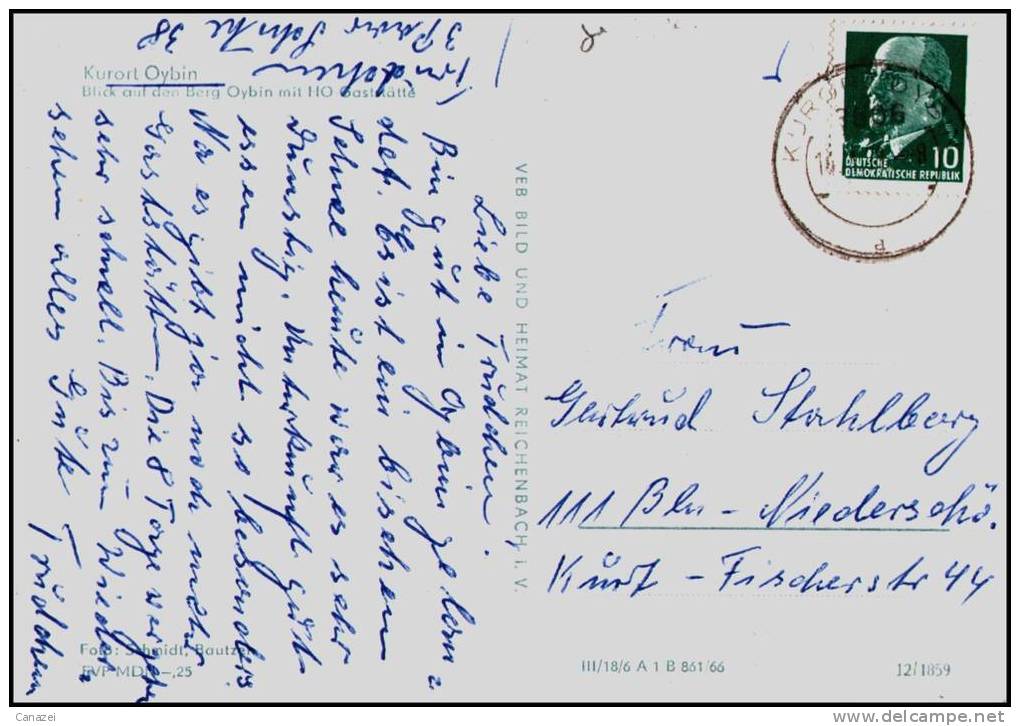 Kurort Oybin
Blick auf den Berg Oybin mit HO-Gaststätte
Liebe Trudchen.
Bin gut in Oybin gelan
det. Es ist ein bischen
Schnee heute war es sehr
dunstig. Unterkunft gut
essen nicht so besonders
Na es gibt ja noch mehr
Gaststätten. Die 8 Tage vergehen
sehr schnell. Bis zum Wieder
sehen alles Gute
Trudchen
VEB BILD UND HEIMAT REICHENBACH i. V.
KURORT OYBIN
DEUTSCHE
DEMOKRATISCHE REPUBLIK
10
Frau
Gertrud Stahlberg
111 Bln - Niederschö.
Kurt - Fischerstr 44
Foto: Schmidt, Bautzen
EVP MDN -,25
III/18/6 A 1 B 861/66
12/1859
Canazei
http://www.delcampe.net